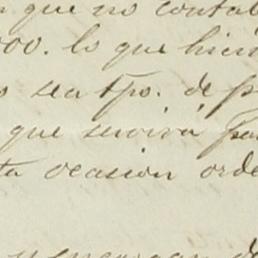 que no contab
000. lo que hicie
sea tpo. de p
que servirá pa
ta ocasion orde